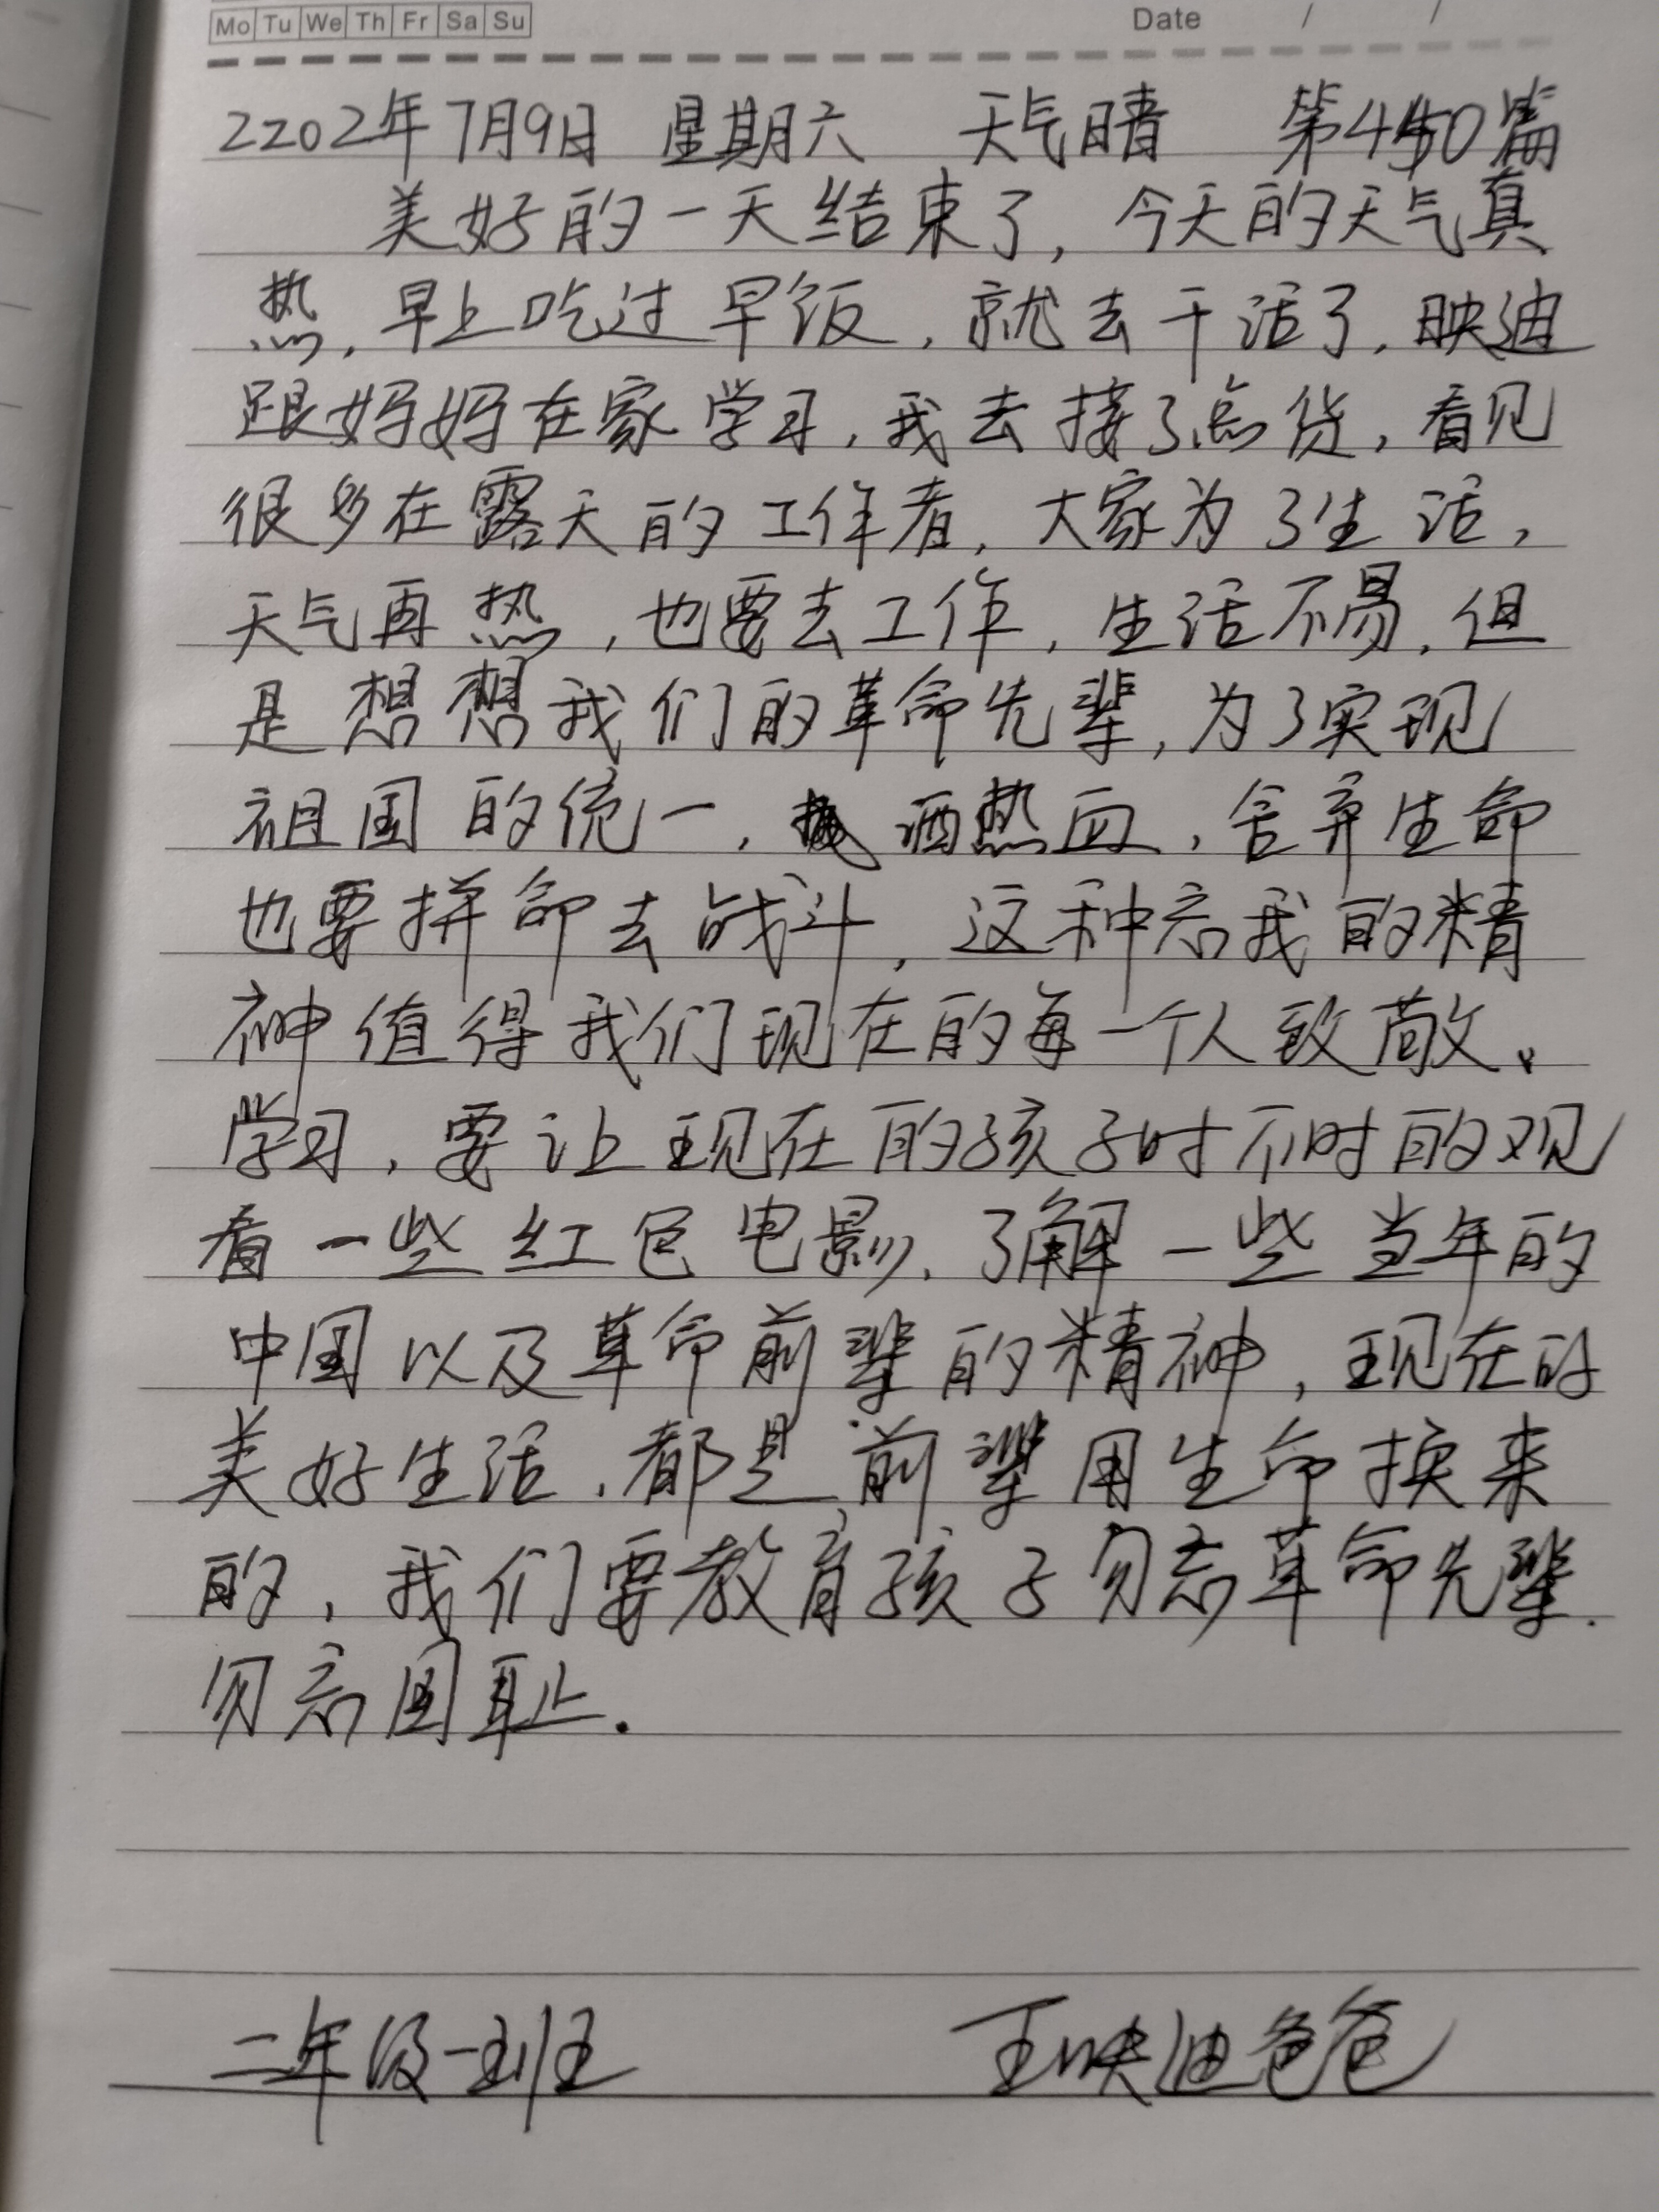 Mo Tu We Th Fr Sa Su Date / /
2202年7月9日 星期六 天气晴 第450篇
美好的一天结束了，今天的天气真
热，早上吃过早饭，就去干活了，映迪
跟妈妈在家学习，我去接了点货，看见
很多在露天的工作者，大家为了生活，
天气再热，也要去工作，生活不易，但
是想想我们的革命先辈，为了实现
祖国的统一，洒热血，舍弃生命
也要拼命去战斗，这种忘我的精
神值得我们现在的每一个人致敬、
学习，要让现在的孩子时不时的观
看一些红色电影，了解一些当年的
中国以及革命前辈的精神，现在的
美好生活，都是前辈用生命换来
的，我们要教育孩子勿忘革命先辈.
勿忘国耻.
二年级一班 王映迪爸爸